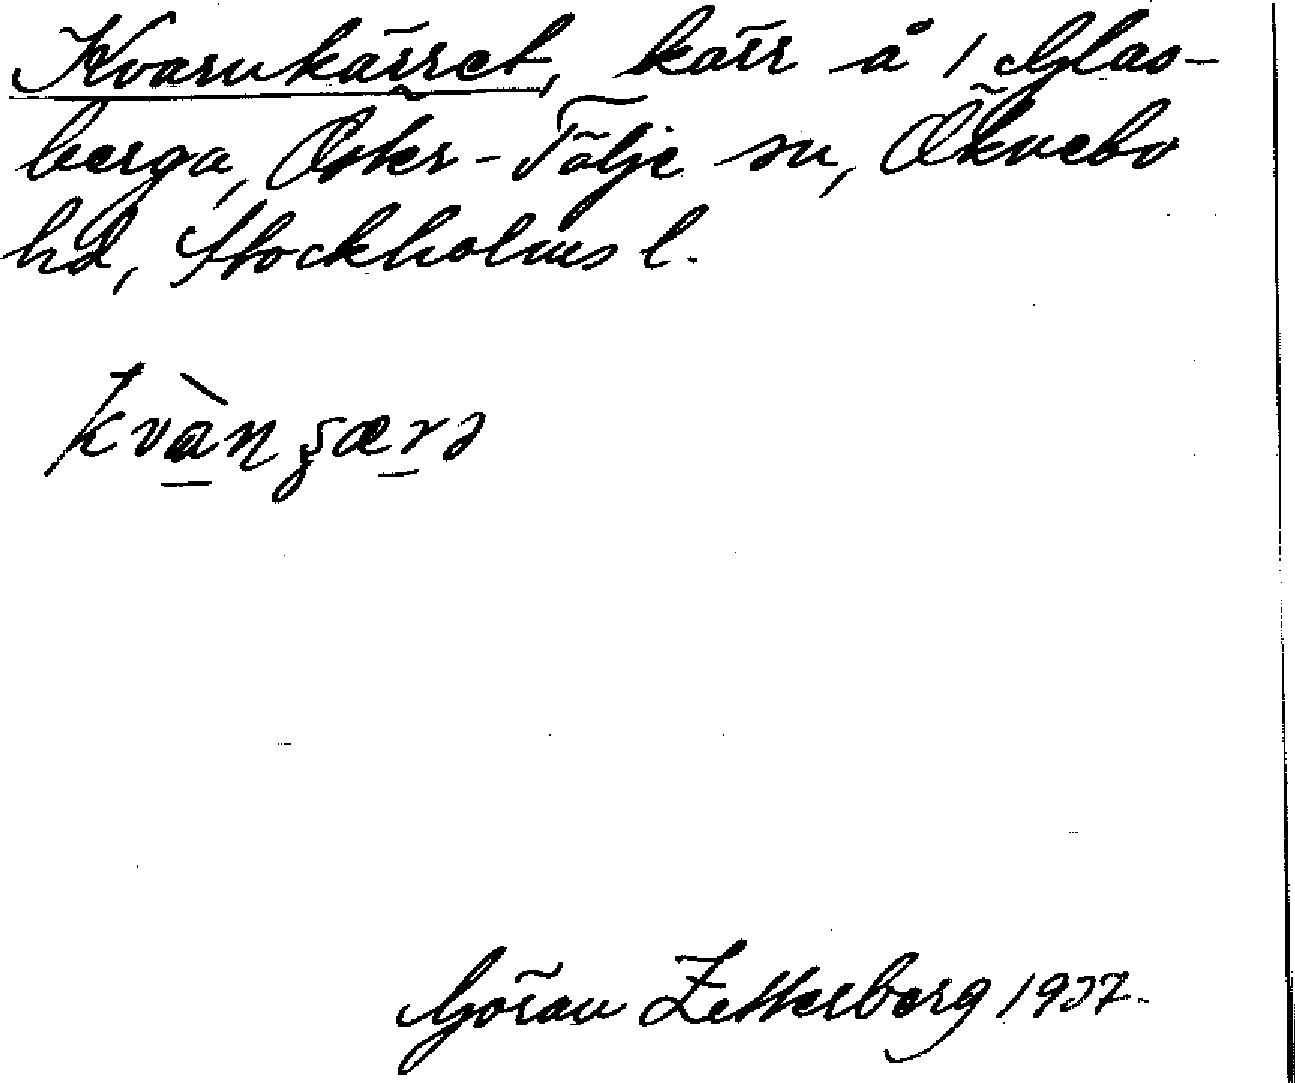 Kvarnkärret, kärr å 1 Glas-
berga, Öster-Tälje sn, Öknebo
hd, Stockholms l.
Göran Zetterberg 1937.